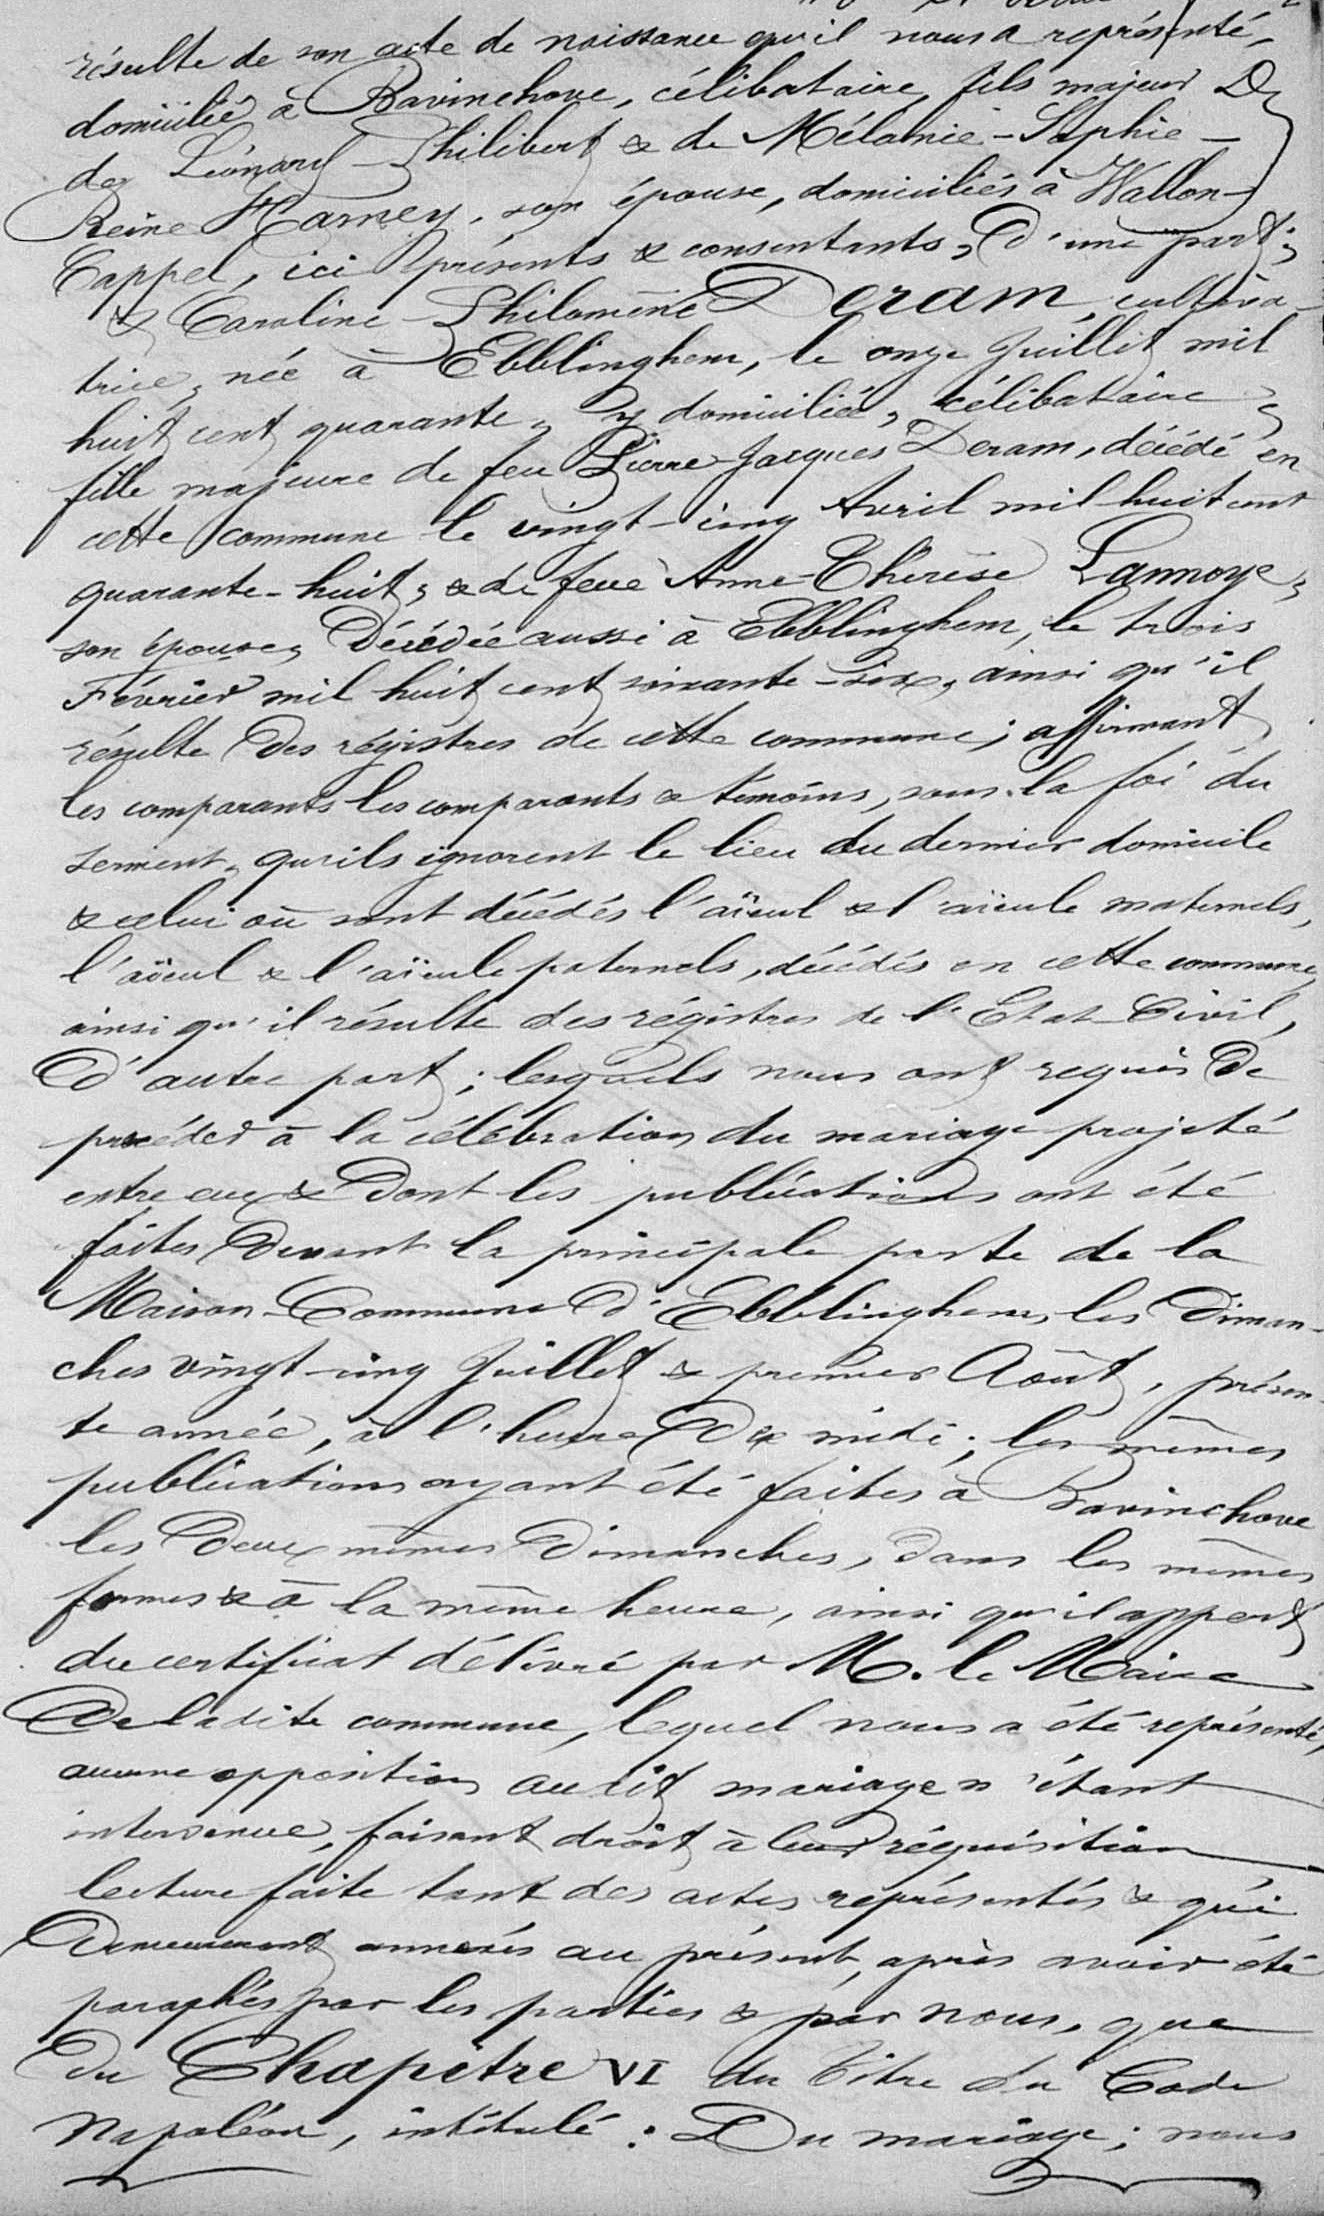 résulte de son acte de naissance qu'il nous a représenté,
domicilié à Bavinchove, célibataire, fils majeur D
de Léonard Philibert & de Mélanie-Sophie-
Reine Harney, son épouse, domiciliés à Wallon-
Cappel, ici présents & consentants, D'une part;
& Caroline Philomène Deram, cultiva-
trice, née à Ebblinghem, le onze Juillet mil
huit cent quarante, y domiciliée, célibataire,
fille majeure de feu Pierre-Jacques Deram, décédé en
cette commune le vingt-cinq Avril mil huit cent
quarante-huit, & de feue Anne-Thérèse Lannoye,
son épouse, Décédée aussi à Ebblinghem, le trois
Février mil huit cent soixante-six, ainsi qu'il
résulte Des régistres de cette commune; affirmant
les comparants les comparants & témoins, sous la foi du
serment, qu'ils ignorent le lieu du dernier domicile
& celui où sont décédés l'aïeul & l'aïeule maternels,
l'aïeul & l'aïeule paternels, décédés en cette commune,
ainsi qu'il résulte des régistres de l'Etat-Civil,
D'autre part; lesquels nous ont requis De
procéder à la célébration du mariage projeté
entre eux & Dont les publications ont été
faites Devant la principale porte de la
Maison-Commune D'Ebblinghem, les Diman-
ches vingt-cinq Juillet & premier Août, présen-
te année, à l'heure De midi; les mêmes
publications ayant été faites à Bavinchove
les Deux mêmes Dimanches, Dans les mêmes
formes & à la même heure, ainsi qu'il appert
du certificat délivré par M. le Maire
De ladite commune, lequel nous a été représenté,
aucune opposition audit mariage n'étant
intervenue, faisant droit à leur réquisition
lecture faite tant des actes représentés & qui
Demeureront annexés au présent, après avoir été
paraphés par les parties & par nous, que
Du Chapitre VI du Titre du Code
Napoléon, intitulé: Du mariage; nous